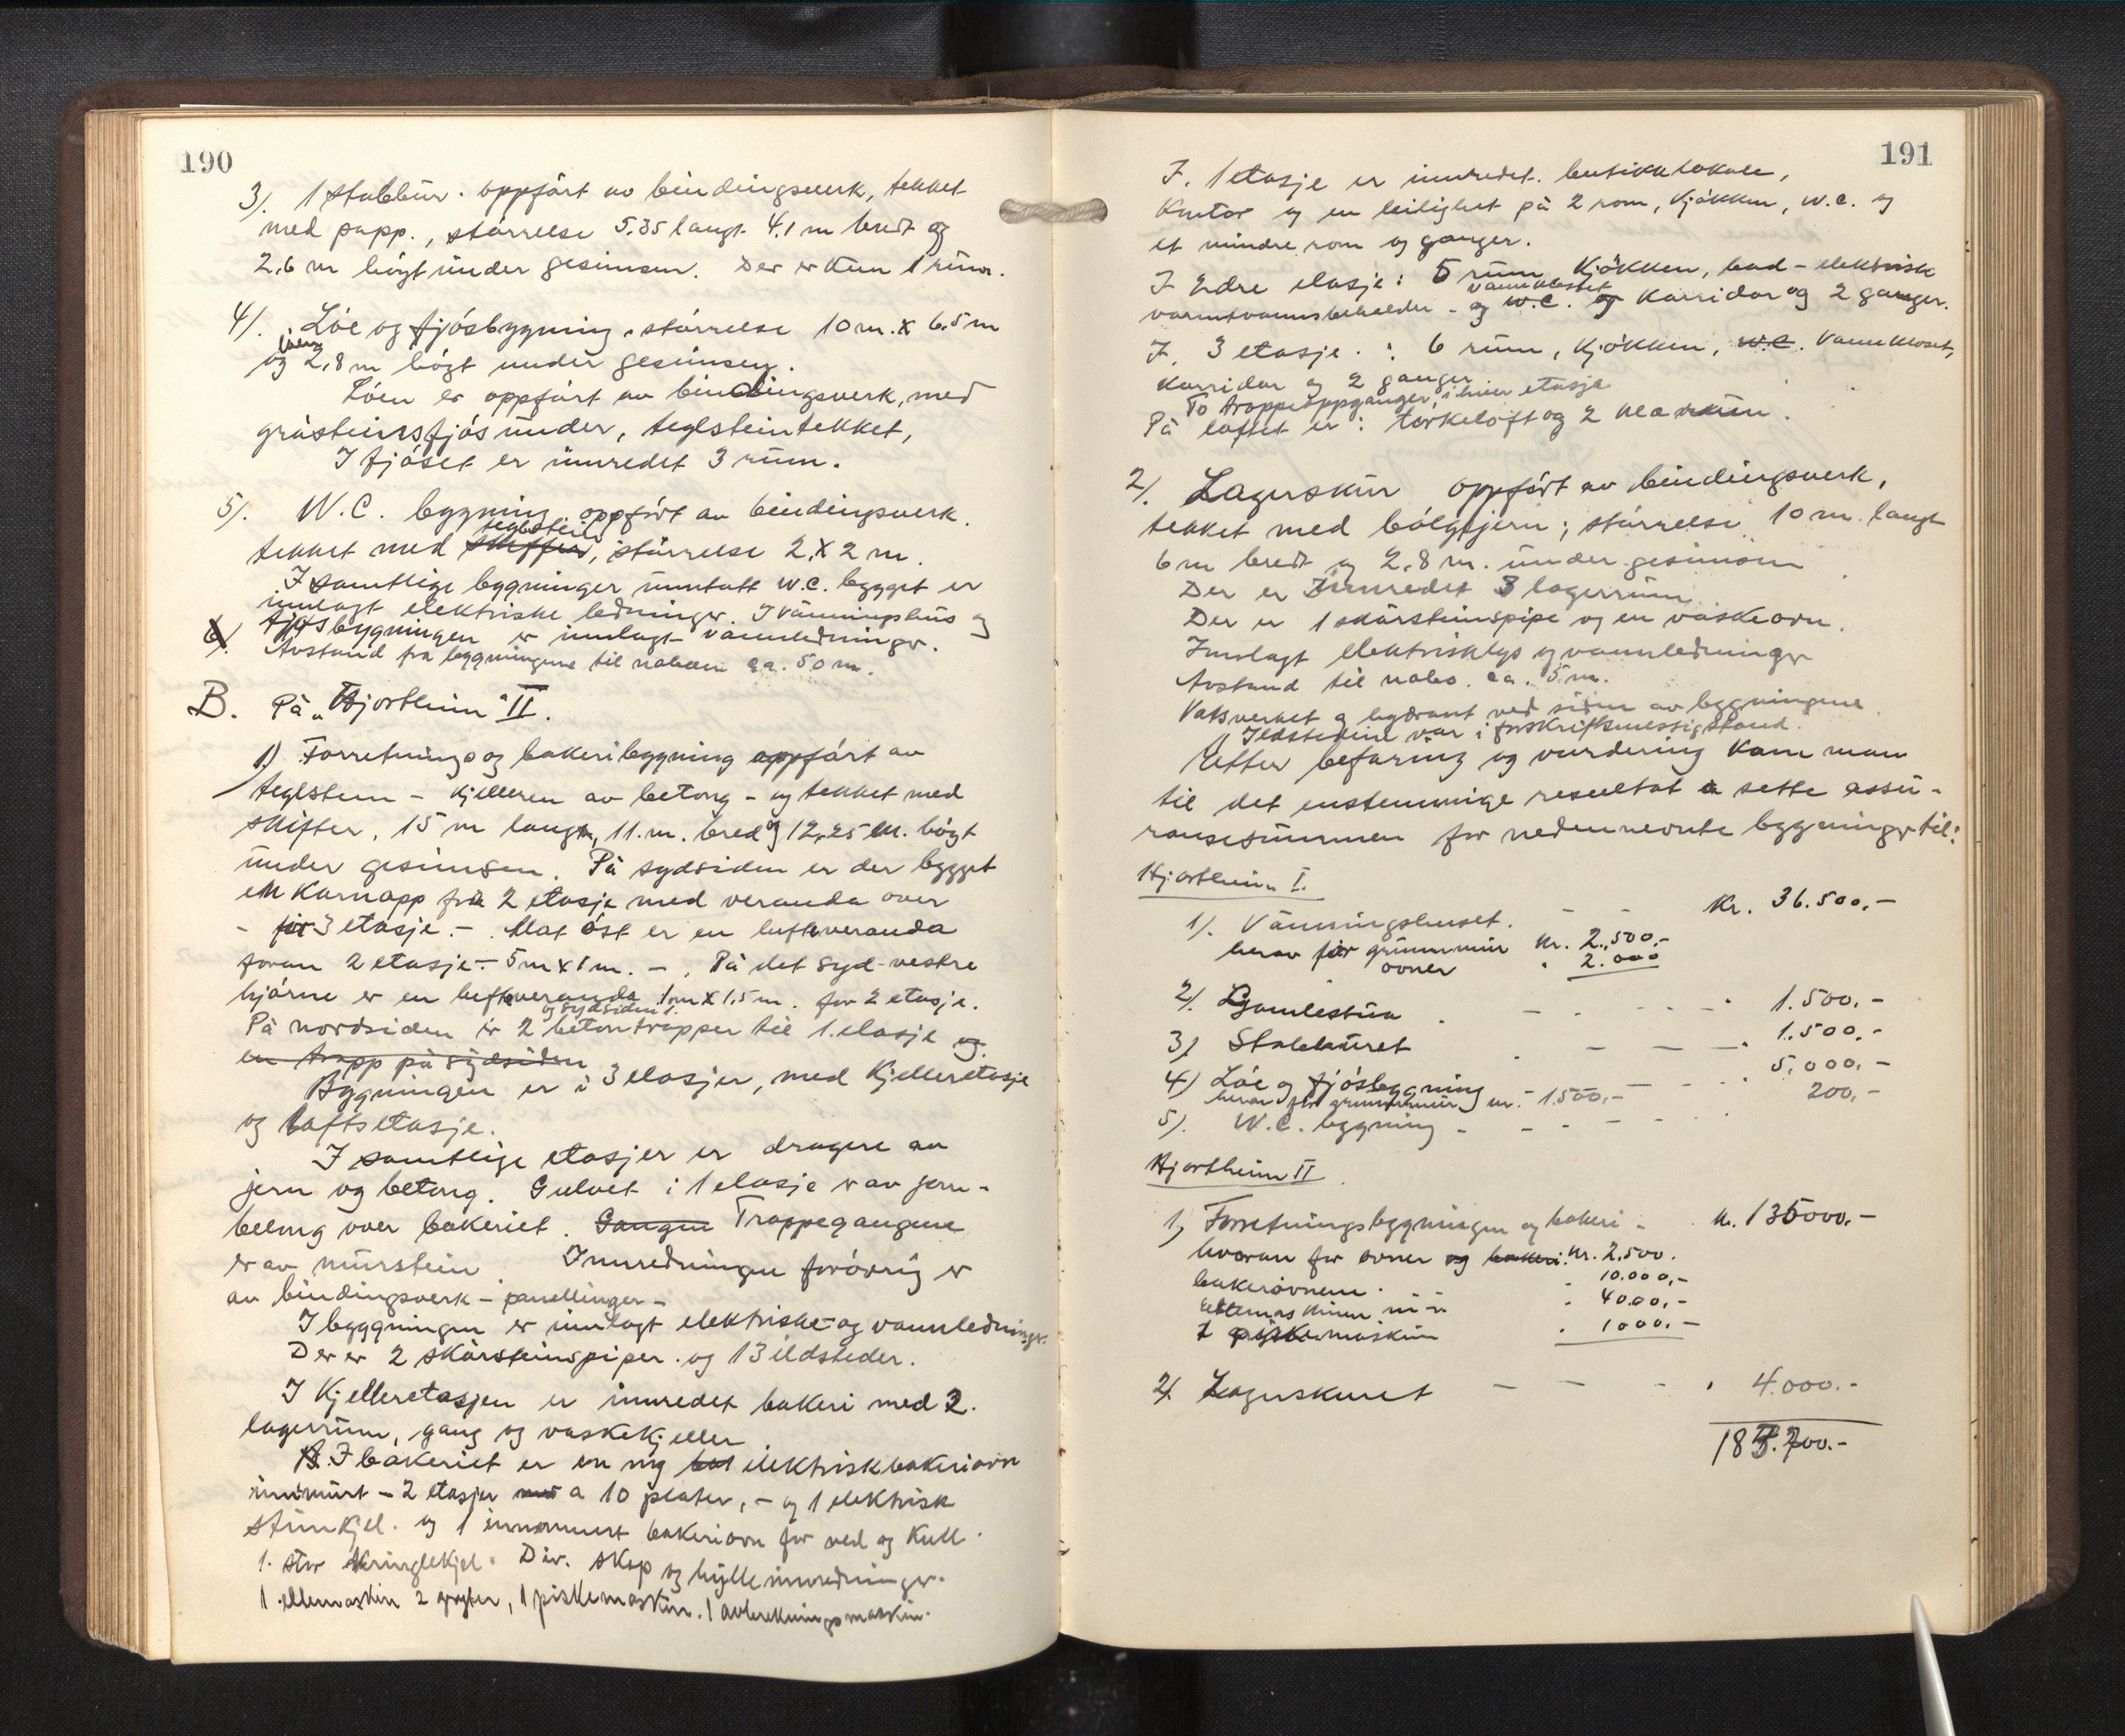 190
3). 1 stabbur. oppført av bindingsverk, tekket
med papp., størrelse 5.35 langt 4.1 m bredt og
2,6 m høgt under gesimsen. Der er kun 1 rum.
4). Løe og fjøsbygning, størrelse 10 m. x 6.5 m
løen
og 2,8 m høgt under gesimsen.
Løen er oppført av bindingsverk, med
gråsteinsfjøs under, teglsteintekket,
I fjøset er innredet 3 rum.
5). W.C. bygning oppført av bindingsverk.
teglstein
tekket med skiffer, størrelse 2 x 2 m.
I samtlige bygninger unntatt w.c. bygget er
innlagt elektriske ledninger. I våningshus og
fjøsbygningen er innlagt vannledninger.
6). Avstand fra bygningene til naboen ca. 50 m.
B. På „Hjortheim" II.
1) Forretnings og bakeribygning oppført av
teglstein - kjelleren av betong - og tekket med
skifter, 15 m langt, 11. m. bred og 12,25 m. høgt
under gesimsen. På sydsiden er der bygget
en karnapp fra 2 etasje med veranda over
- for 3 etasje. - Mot øst er en luftveranda
foran 2 etasje - 5 m x 1 m. -. På det syd-vestre
hjørne er en luftveranda 1 m x 1,5 m. for 2 etasje.
og sydsiden 1.
På nordsiden er 2 betontrapper til 1. etasje og
en trapp på sydsiden
Bygningen er i 3 etasjer, med kjelleretasje
og loftsetasje.
I samtlige etasjer er dragere av
jern og betong. Gulvet i 1 etasje er av jern-
betong over bakeriet. Gangen Trappegangene
er av murstein Innredningen forøvrig er
av bindingsverk - panellinger -
I bygningen er innlagt elektriske- og vannledninger.
Der er 2 skorsteinspiper. og 13 ildsteder.
I Kjelleretasjen er innredet bakeri med 2.
lagerrum, gang og vaskekjeller
I bakeriet er en ny elektrisk bakeriovn
innmurt - 2 etasjer a 10 plater, - og 1 elektrisk
stimkjel. og 1 innmuret bakeriovn for ved og kull.
1. stor kringlekjel. Div. skap og hylleinnredninger.
1 eltemaskin 2 gryter, 1 piskemaskin. 1 avbrekningsmaskin.
191
I. 1 etasje er innredet. butikklokale,
kontor og en leilighet på 2 rom, kjøkken, w.c. og
et mindre rom og ganger.
I 2dre etasje: 5 rum, kjøkken, bad - elektrisk
vannkloset
varmtvannsbeholder - og w.c. og korridor og 2 ganger.
I. 3 etasje. : 6 rum, kjøkken, w.c. vannkloset,
korridor og 2 ganger
To trappeoppganger i hver etasje
På loftet er: tørkeloft og 2 rum.
2). Lagerskur oppført av bindingsverk,
tekket med bølgejern; størrelse 10 m. langt
6 m bredt og 2,8 m. under gesimsen
Der er innredet 3 lagerrum
Der er 1 skorsteinspipe og en vaskeovn.
Innlagt elektrisklys og vannledninger
Avstand til nabo ca. 5 m.
Vassverket og hydrant ved siden av bygningene
Ildstedene var i forskriftsmessig stand.
Etter befaring og vurdering kom man
til det enstemmige resultat å sette assu-
ransesummen for nedennevnte bygninger til:
Hjortheim I.
1). Våningshuset. - - Kr. 36.500,-
herav for grunnmur kr. 2.500,-
ovner " 2.000
2). Gamlestua - - - " 1.500,-
3) Stabburet - - - " 1.500,-
4) Løe og fjøsbygning - - - " 5.000,-
herav for grunnmur kr. 1500,-
5). W.C. bygning - - - - 200,-
Hjortheim II
1) Forretningsbygningen og bakeri - kr. 135000,-
hvorav for ovner og bakeri kr. 2.500.
bakerovnene " 10.000,-
eltemaskinen " 4000,-
1 piskemaskin " 1000,-
2). Lagerskuret - - - " 4.000.-